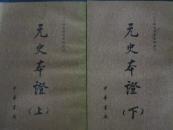 元史本證
(上)
中華書局
元史本證
(下)
中華書局